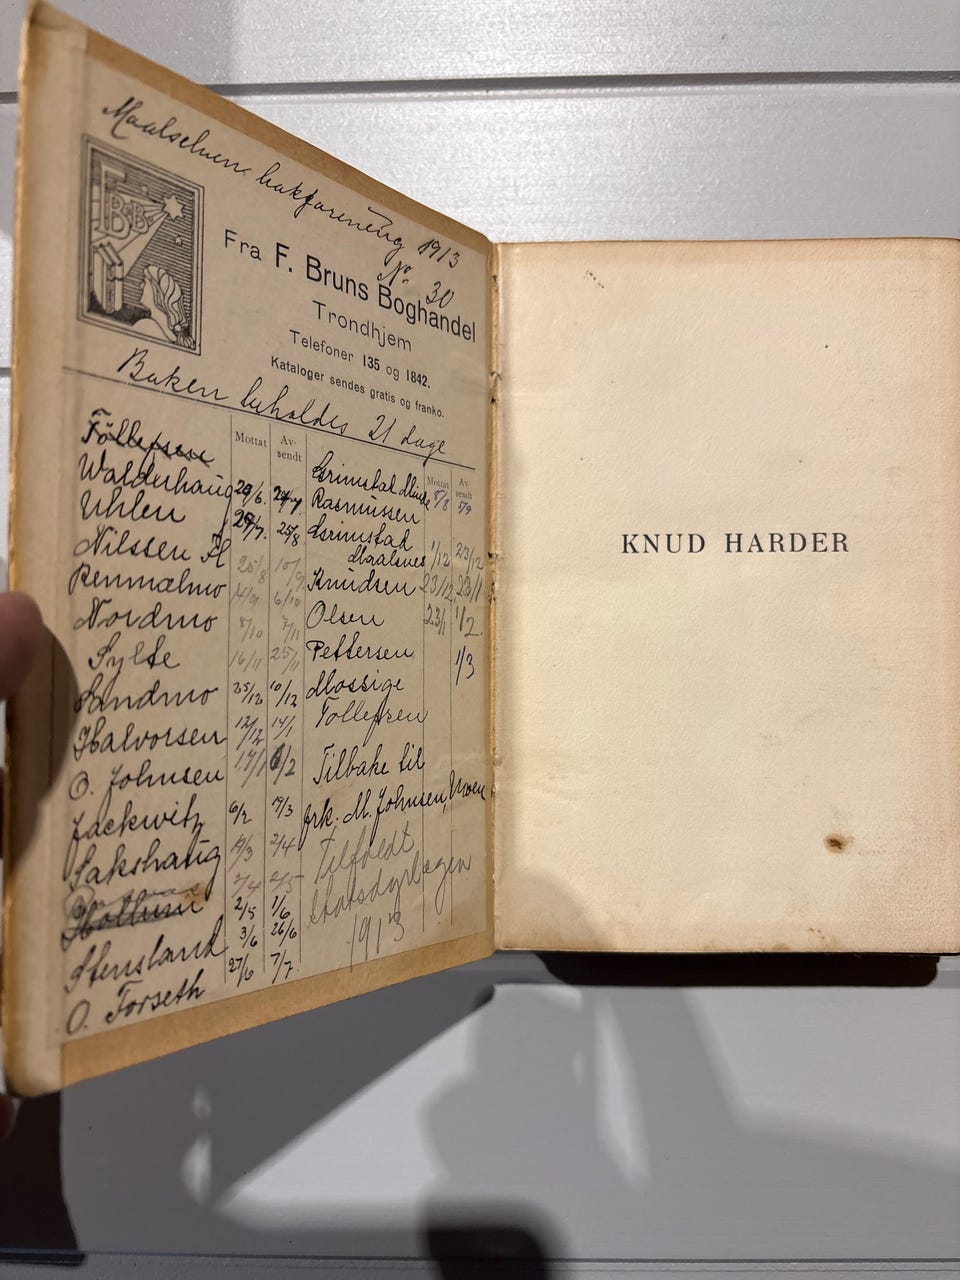 Maalselven bokforening 1913
No. 30
FBB
Fra F. Bruns Boghandel
Trondhjem
Telefoner 135 og 1842.
Kataloger sendes gratis og franko.
Boken beholdes 21 dage
Mottat Av-sendt
Tollefsen
Walderhaug 29/6. 29/7
Uhlen 29/7. 25/8
Nilssen Fl 25/8 10/9
Renmælmo 14/9 6/10
Nordmo 8/10 7/11
Sylte 16/11 25/11
Sandmo 25/12 10/12
Halvorsen 12/12 14/1
O. Johnsen 17/1 6/2
Jackwitz 6/2 19/3
Sakshaug 19/3 2/4
2/4 2/5
Hollum 2/5 1/6
Stensland 3/6 26/6
O. Forseth 27/6 7/7.
Mottat Av-sendt
Grimstad Moen 8/8 5/9
Rasmussen
Grimstad
Maalsnes 1/12 23/12
Knudsen 23/12 23/1
Olsen 23/1 1/2.
Pettersen 1/3
Mossige
Tollefsen
Tilbake til
frk. M. Johnsen, Moen
Tilfaldt
1913
KNUD HARDER